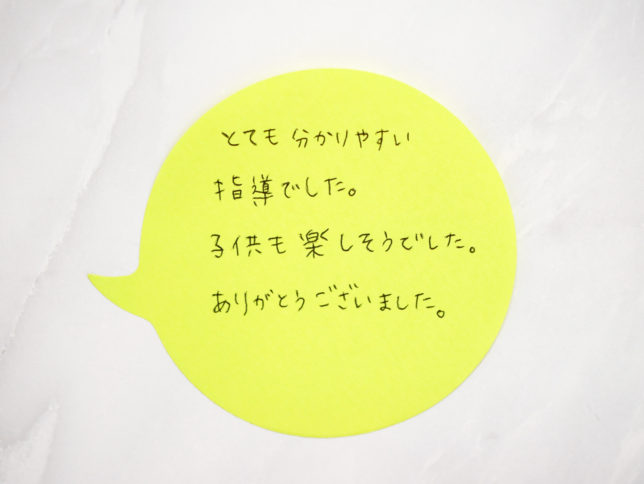 とても分かりやすい
指導でした。
子供も楽しそうでした。
ありがとうございました。